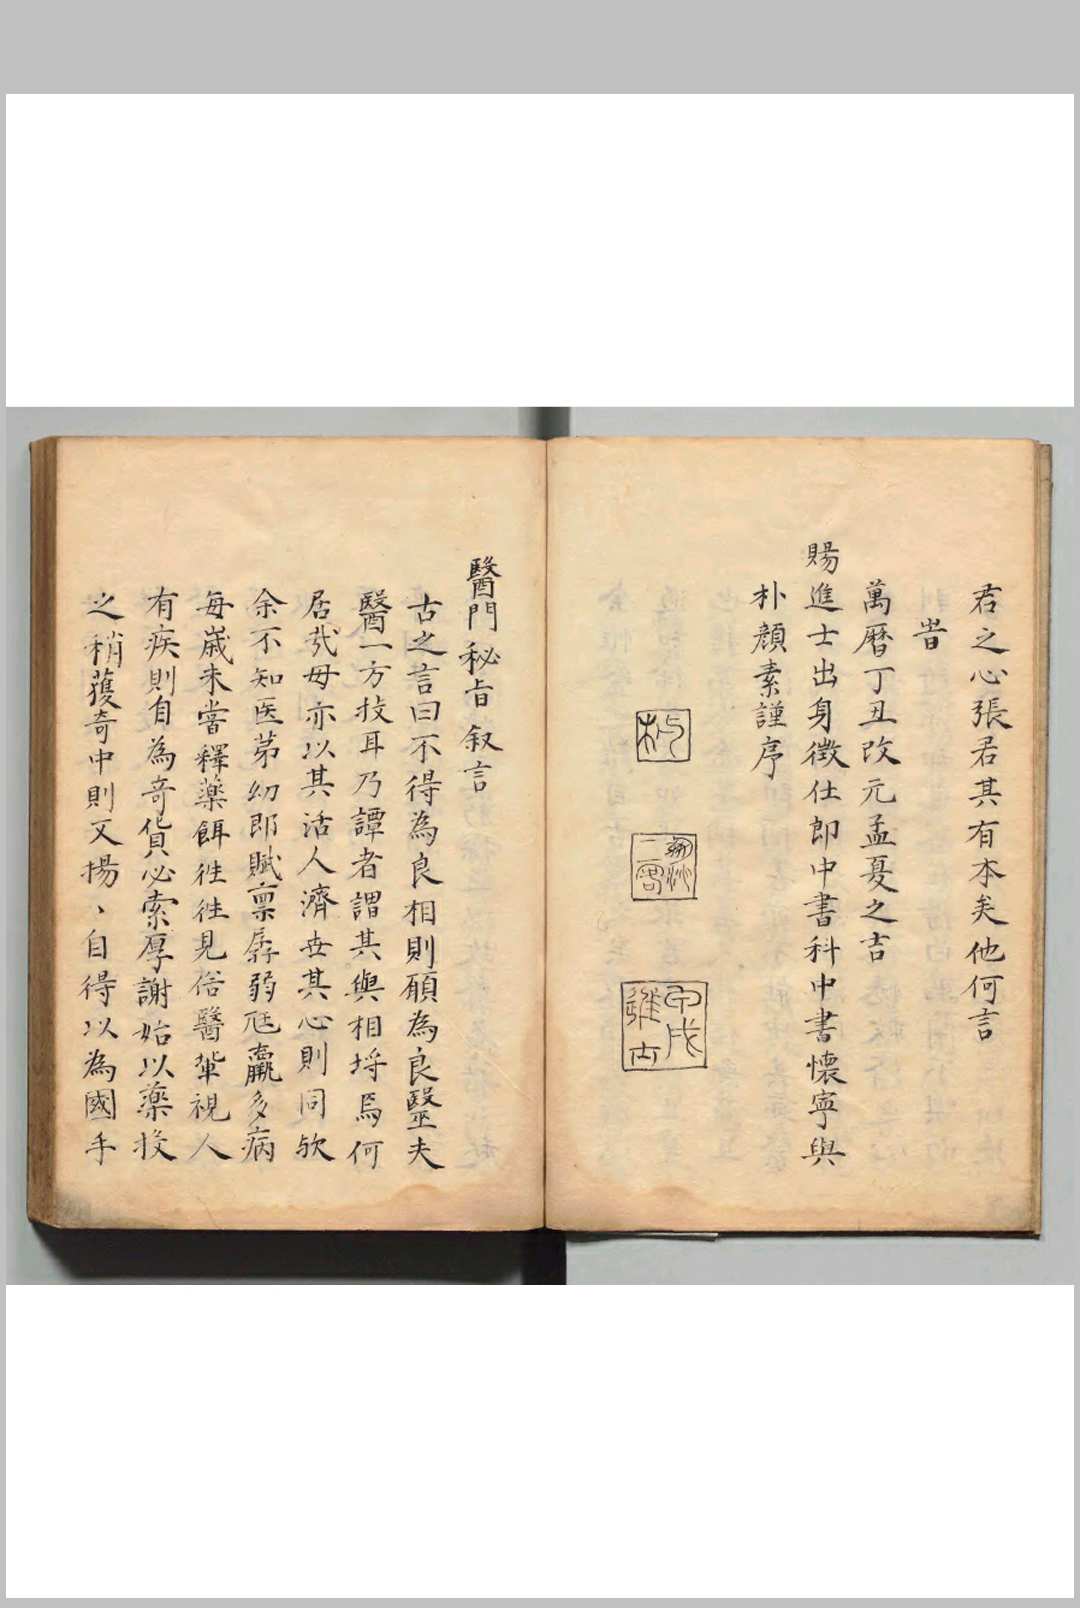 君之心張君其有本矣他何言
昔
萬曆丁丑改元孟夏之吉
賜進士出身徵仕郎中書科中書懷寧與
朴顏素謹序
朴
甲戌進士
醫門秘旨叙言
古之言曰不得為良相則願為良醫夫
醫一方技耳乃譚者謂其與相埒焉何
居哉毋亦以其活人濟世其心則同欤
余不知医苐幼即賦禀孱弱尫羸多病
每歲未嘗釋藥餌徃徃見俗醫軰視人
有疾則自為奇貨必索厚謝始以藥投
之稍獲奇中則又揚、自得以為國手